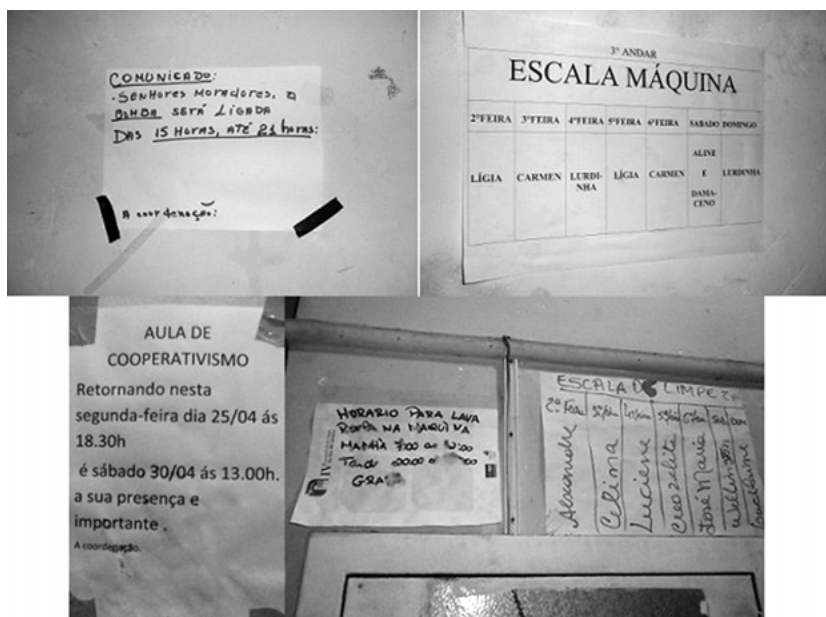 COMUNICADO:
- SENHORES MORADORES, A
BOMBA SERÁ LIGADA
DAS 15 HORAS, ATÉ 21 horas:
A coordenação:
3º ANDAR
ESCALA MÁQUINA
2ªFEIRA 3ªFEIRA 4ªFEIRA 5ªFEIRA 6ªFEIRA SABADO DOMINGO
LÍGIA CARMEN LURDI-NHA LÍGIA CARMEN ALINE E DAMA-CENO LURDINHA
AULA DE
COOPERATIVISMO
Retornando nesta
segunda-feira dia 25/04 ás
18.30h
é sábado 30/04 ás 13.00h.
a sua presença e
importante .
A coordegação.
HORARIO PARA LAVA
ROUPA NA MAQUINA
MANHÃ 7:00 as
Tarde
ESCALA DE LIMPEZA
2ª Feira
Alexandre
Celina
Luciene
Creozalite
José Maria
Wellington